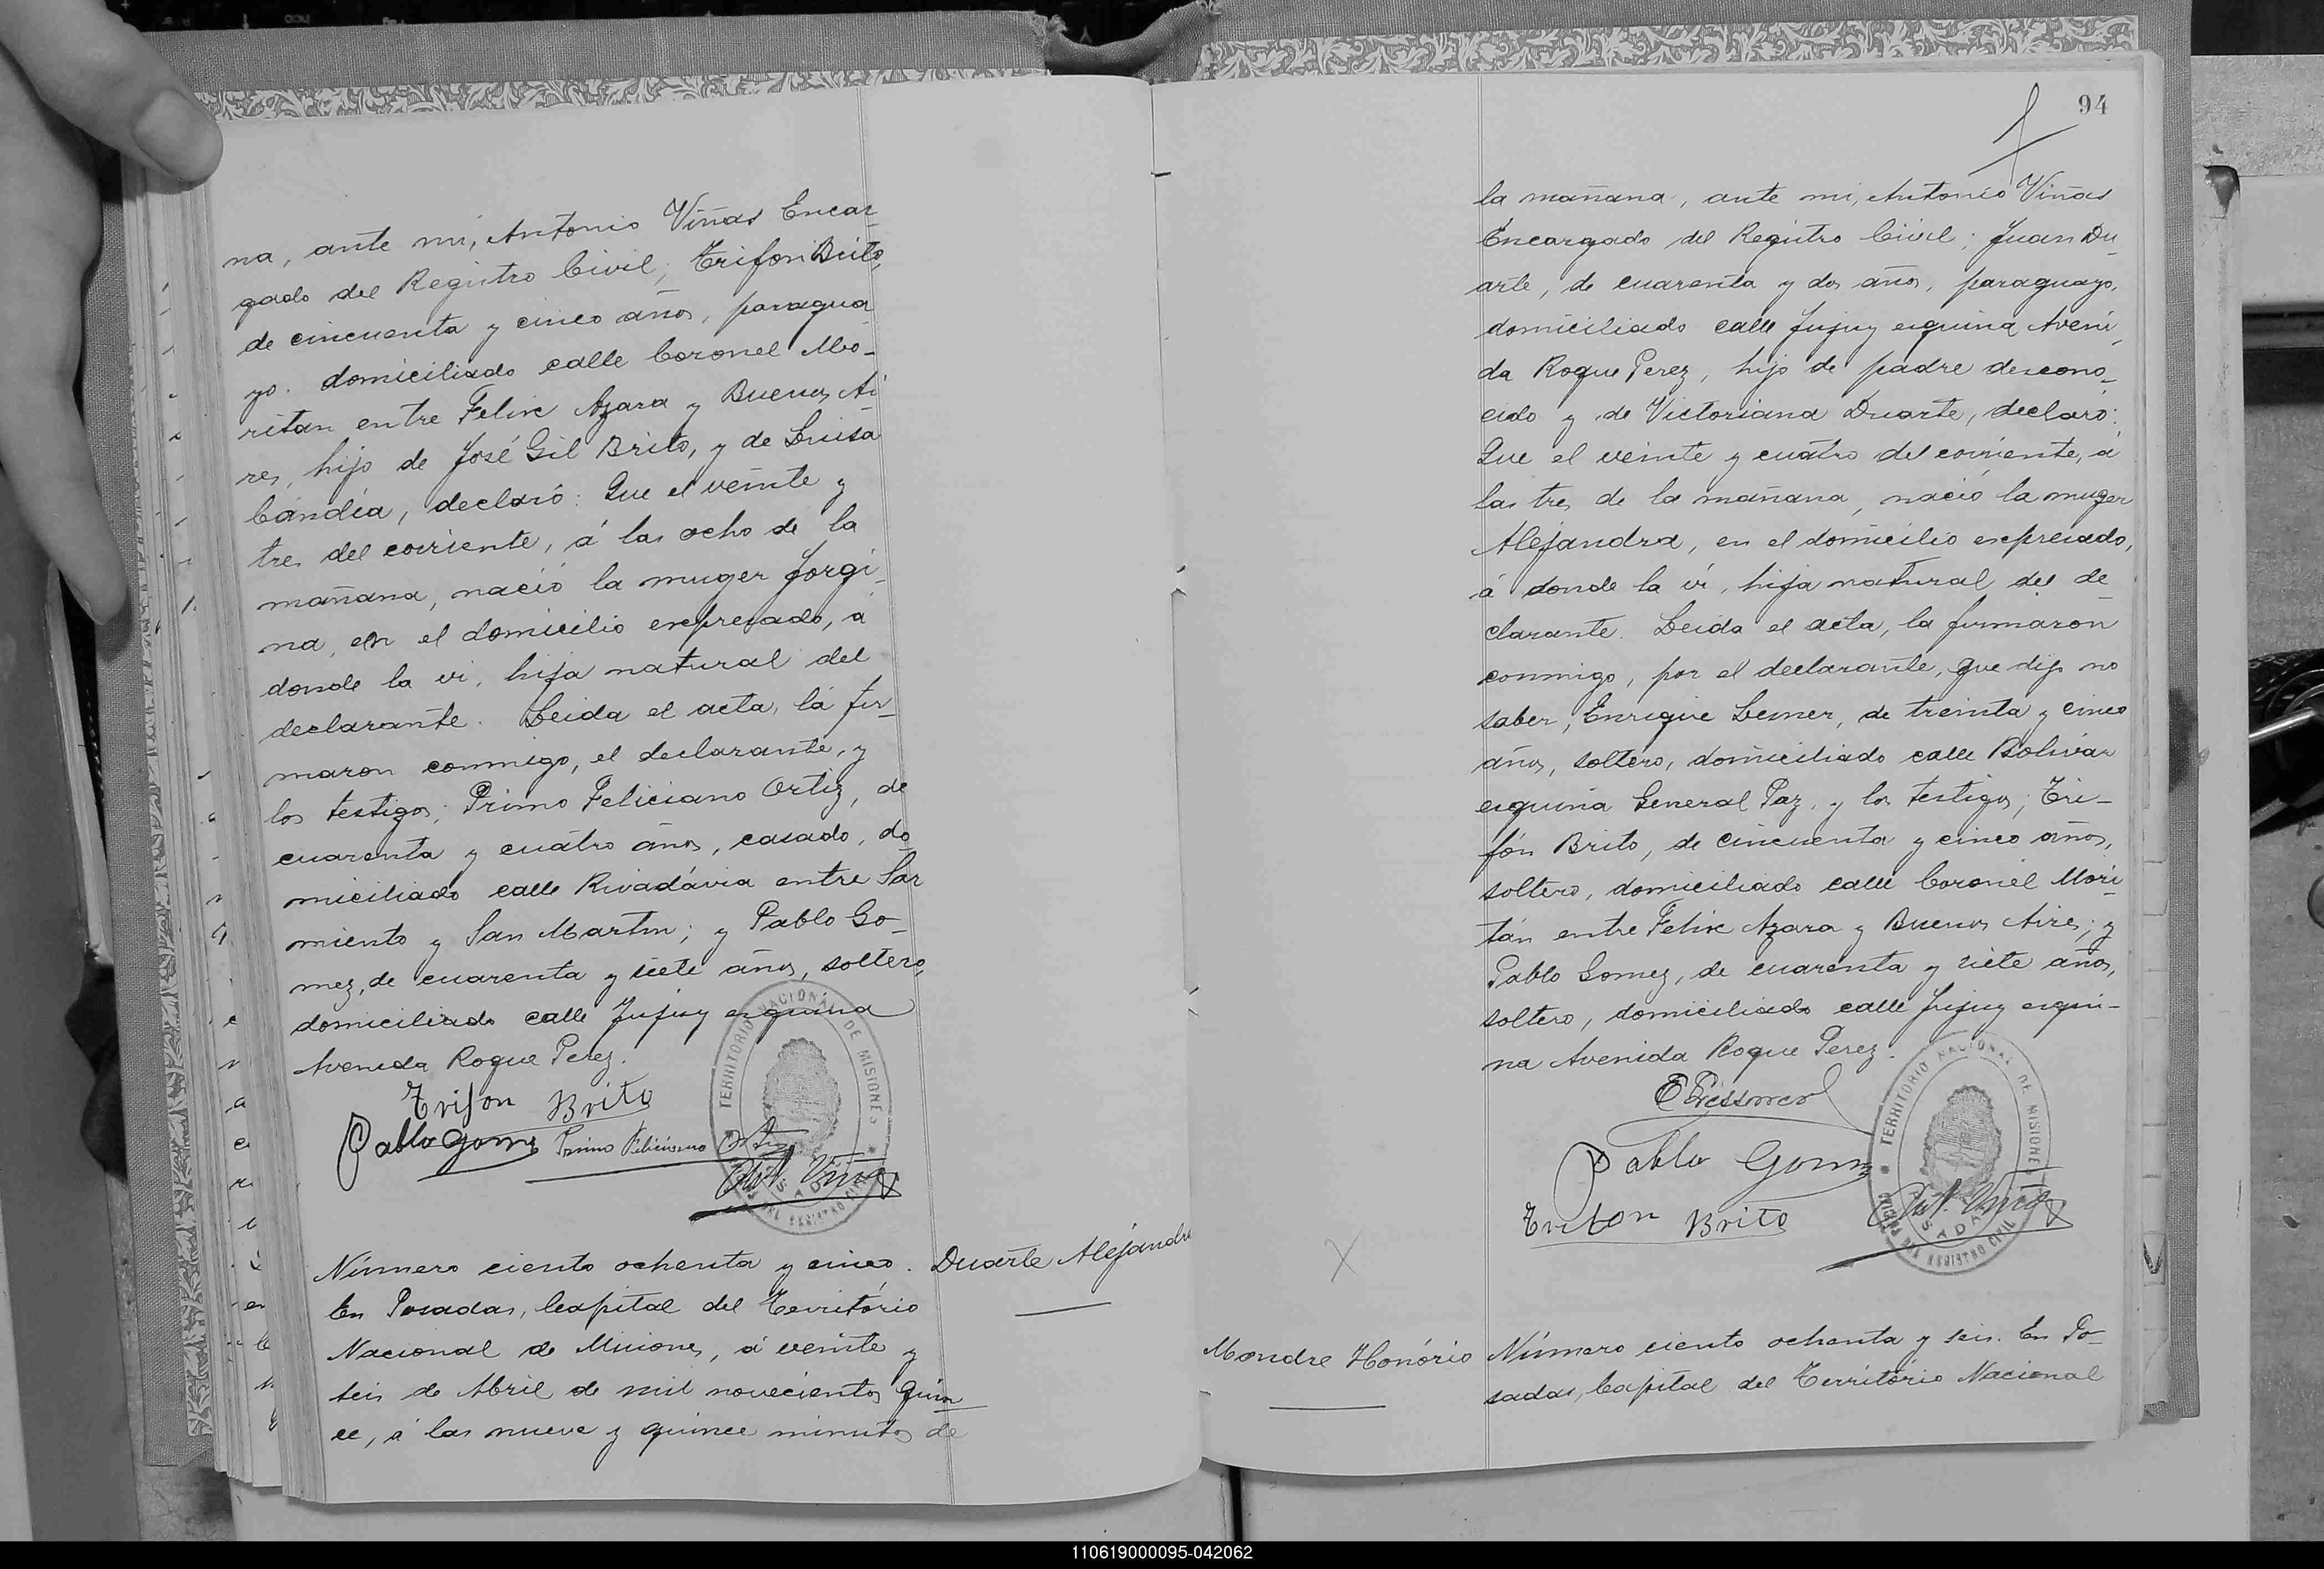 na, ante mi, Antonio Viñas Encar
gado del Registro Civil; Trifon Brito,
de cincuenta y cinco años, paragua
yo. domiciliado calle Coronel Mo-
ritan entre Felix Azara y Buenos Ai
res, hijo de José Gil Brito, y de Luisa
Candia, declaró: Que el veinte y
tres del corriente, á las ocho de la
mañana, nació la muger Jorgi_
na, en el domicilio expresado, á
donde la vi, hija natural del
declarante. Leida el acta, la fir_
maron conmigo, el declarante, y
los testigos; Primo Feliciano Ortiz, de
cuarenta y cuatro años, casado, do
miciliado calle Rivadavia entre Sar
miento y San Martin; y Pablo Go_
mez, de cuarenta y siete años, soltero,
domiciliado calle Jujuy esquina
Avenida Roque Perez.
Trifon Brito
Pablo Gomez Primo Feliciano Ortiz
Ant. Viñas
TERRITORIO NACIONAL DE MISIONES
DEL REGISTRO CIVIL
Número ciento ochenta y cinco. Duarte Alejandra
En Posadas, Capital del Território
Nacional de Misiones, á veinte y
seis de Abril de mil novecientos quin
ce, á las nueve y quince minutos de
94
la mañana, ante mi, Antonio Viñas
Encargado del Registro Civil; Juan Du_
arte, de cuarenta y dos años, paraguayo,
domiciliado calle Jujuy esquina Aveni_
da Roque Perez, hijo de padre descono_
cido y de Victoriana Duarte, declaró:
Que el veinte y cuatro del corriente, á
las tres de la mañana, nació la muger
Alejandra, en el domicilio expresado,
á donde la vi, hija natural del de_
clarante. Leida el acta, la firmaron
conmigo, por el declarante, que dijo no
saber, Enrique, de treinta y cinco
años, soltero, domiciliado calle Bolivar
esquina General Paz, y los testigos; Tri_
fón Brito, de cincuenta y cinco años,
soltero, domiciliado calle Coronel Mori_
tán entre Felix Azara y Buenos Aires; y
Pablo Gomez, de cuarenta y siete años,
soltero, domiciliado calle Jujuy esqui-
na Avenida Roque Perez.
Pablo Gomez
Trifon Brito Ant. Viñas
TERRITORIO NACIONAL DE MISIONES
DEL REGISTRO CIVIL
X
Mondre Honório Número ciento ochenta y seis. En Po_
sadas, Capital del Território Nacional
110619000095-042062